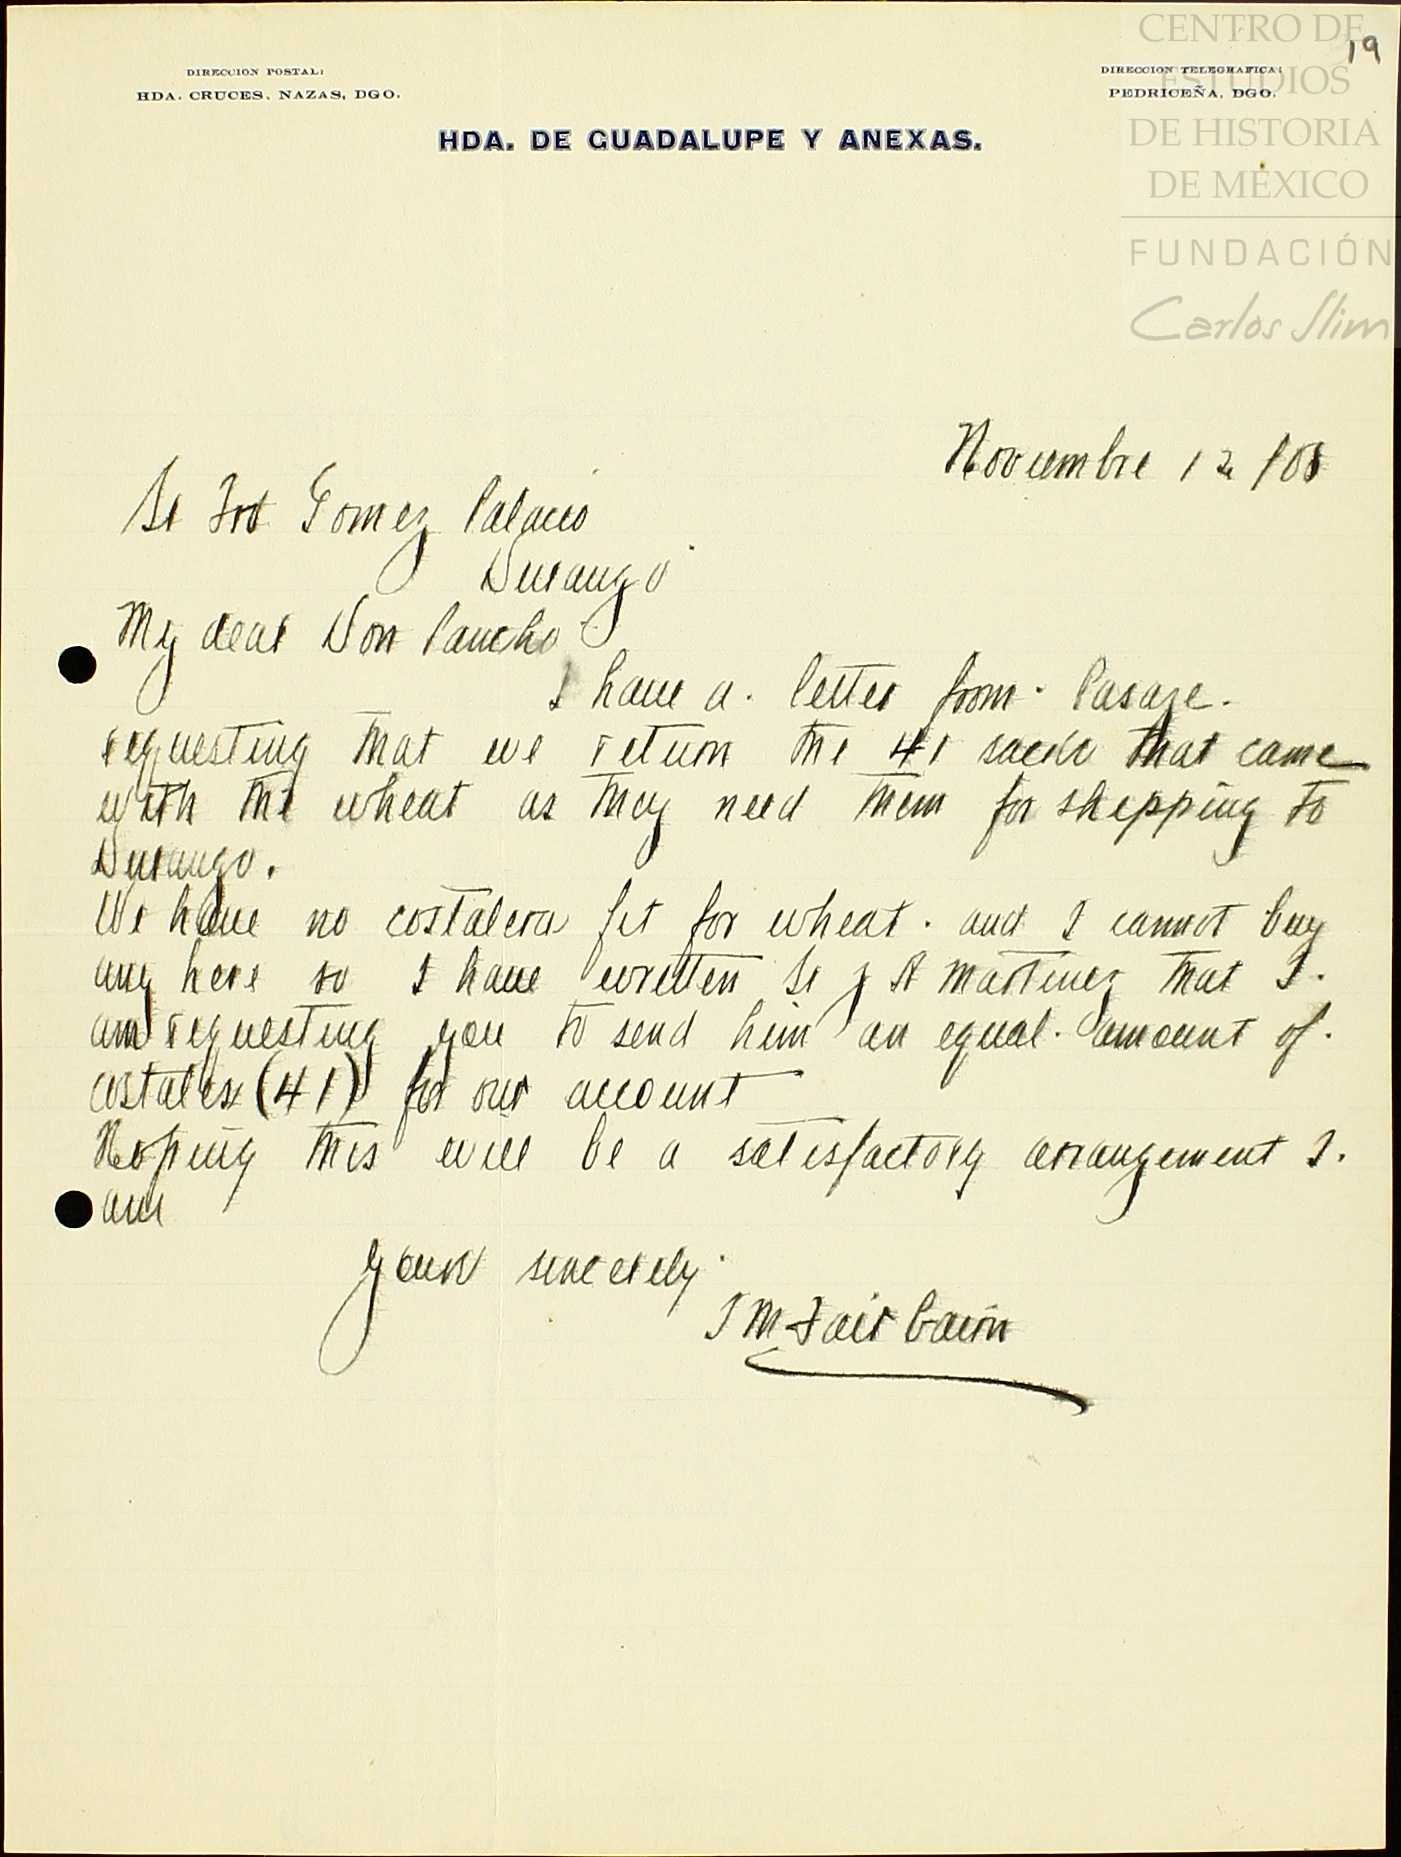 19
DIRECCION POSTAL:
HDA. CRUCES, NAZAS, DGO.
DIRECCION TELEGRAFICA:
PEDRICEÑA, DGO.
HDA. DE GUADALUPE Y ANEXAS.
CENTRO DE
ESTUDIOS
DE HISTORIA
DE MÉXICO
FUNDACIÓN
Carlos Slim
Noviembre 12 /08
Sr Fco Gomez Palacio
Durango
My dear Don Pancho
I have a letter from Pasaje.
requesting that we return the 41 sacks that came
with the wheat as they need them for shipping to
Durango.
We have no costalera fit for wheat. and I cannot buy
any here so I have written Sr J A Martinez that I.
am requesting you to send him an equal amount of.
costales (41) for our account
Hoping this will be a satisfactory arrangement I.
am
Yours sincerely
J M Fairbairn